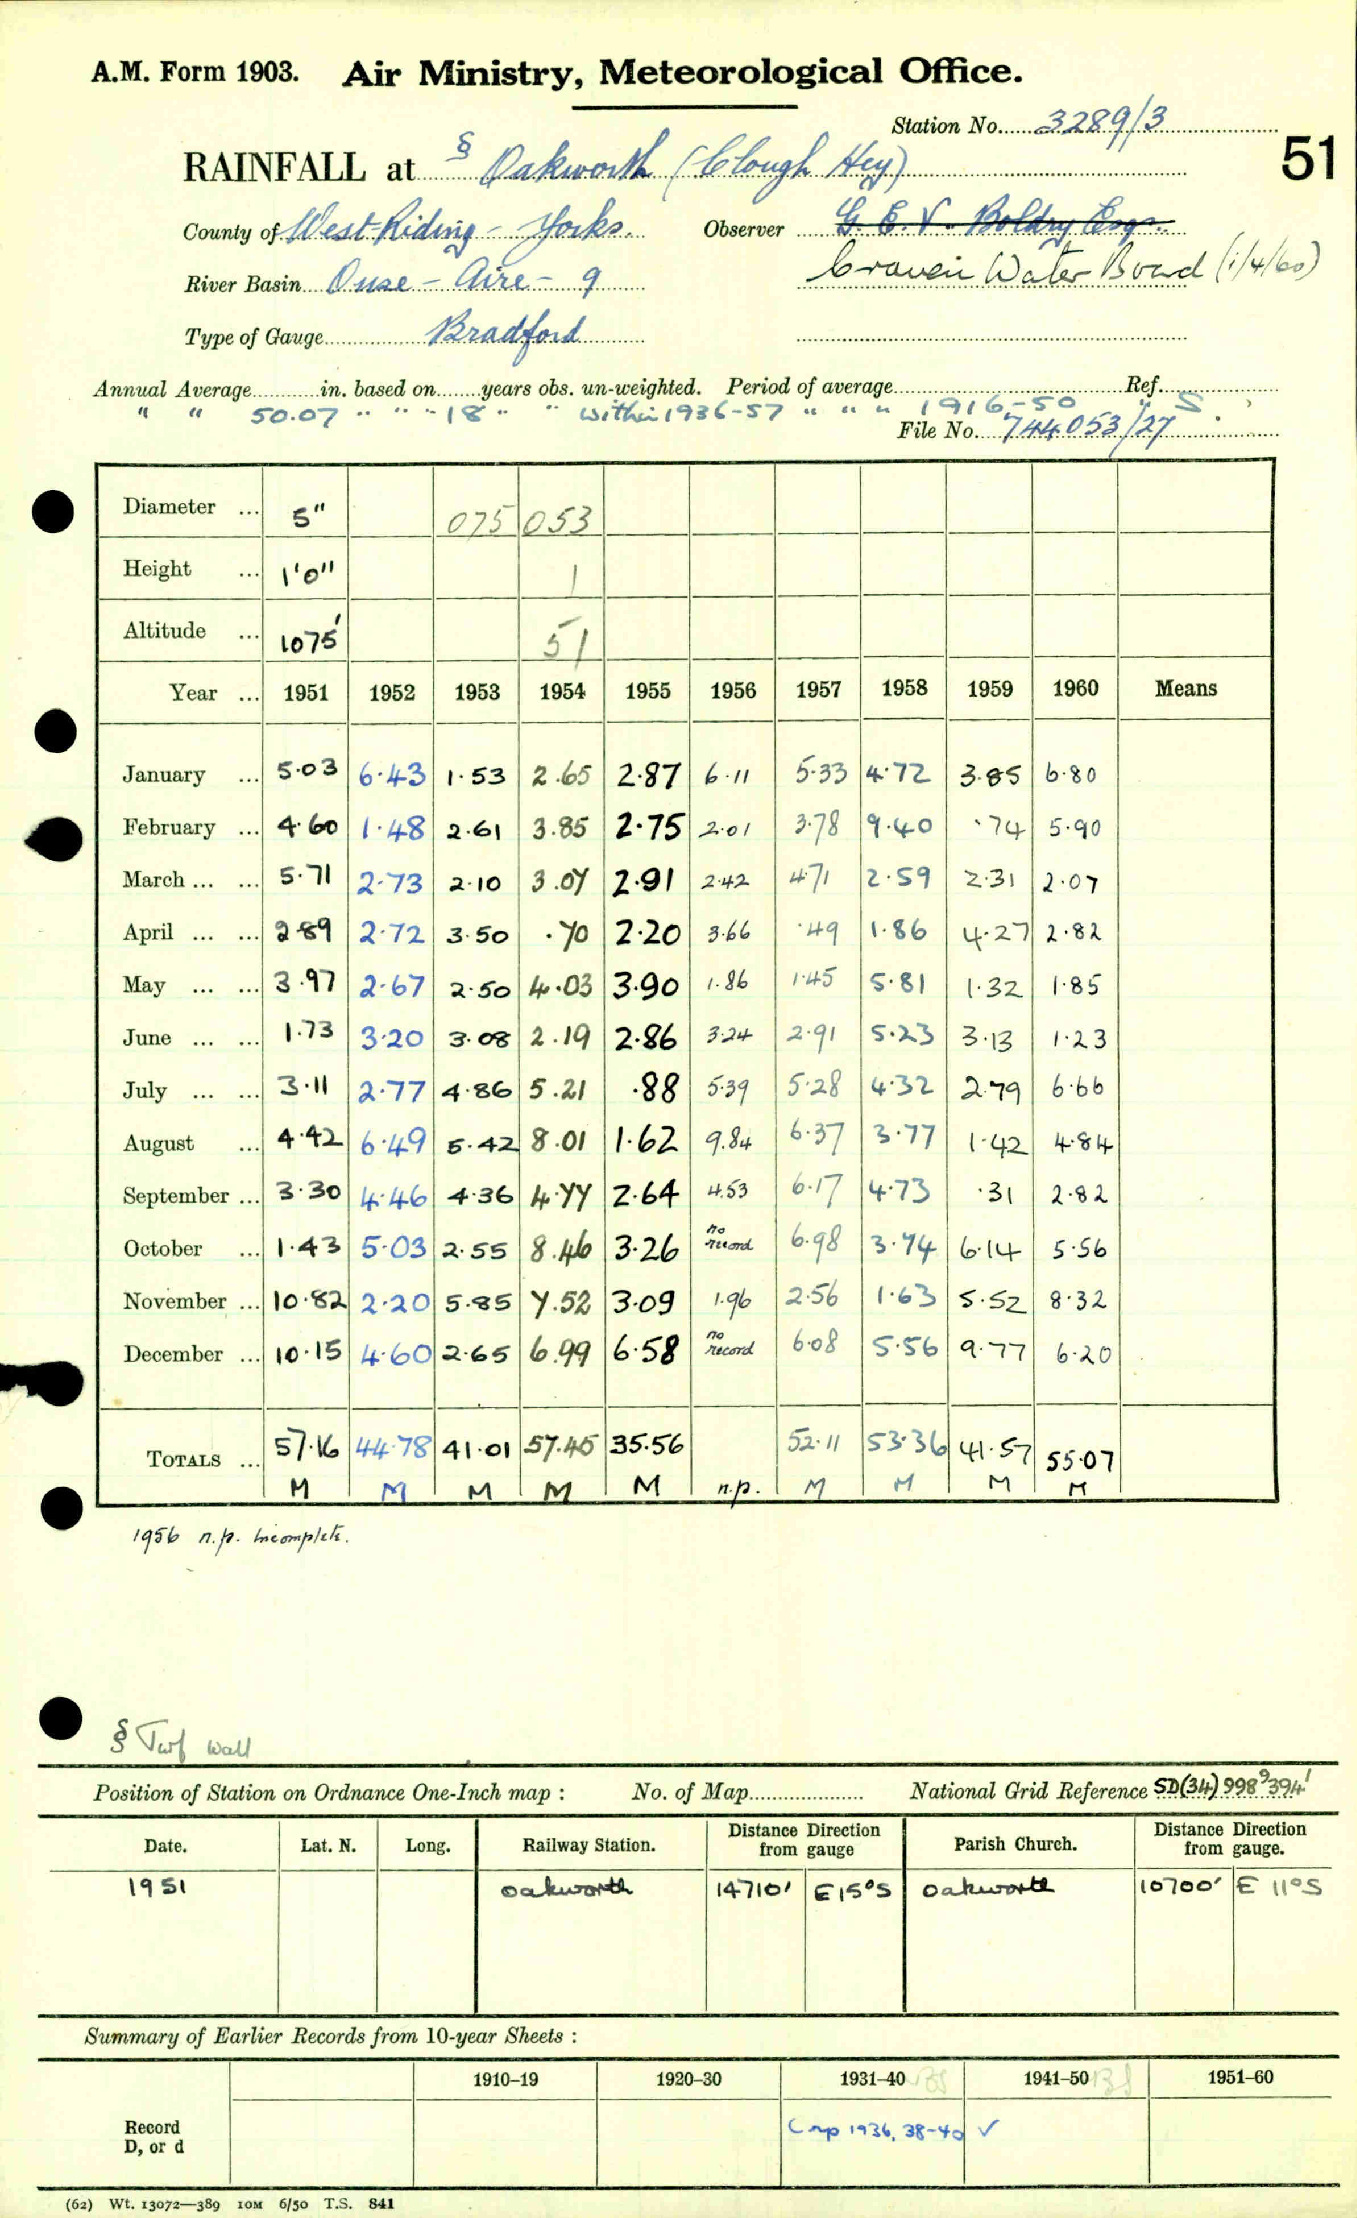 A.M. Form 1903. Air Ministry, Meteorological Office.
Station No. 3289/3
51
RAINFALL at § Oakworth (Clough Hey)
County of West Riding - Yorks. Observer G. E. V. Boldry Esq.
River Basin Ouse - Aire - 9 Craven Water Board (1/4/60)
Type of Gauge Bradford
Annual Average in. based on years obs. un-weighted. Period of average Ref.
" " 50.07 " " " 18 " " within 1936-57 " " " 1916-50 " S.
File No. 744053/27
Diameter ... 5" 075 053
Height ... 1'0" 1
Altitude ... 1075' 51
Year ... 1951 1952 1953 1954 1955 1956 1957 1958 1959 1960 Means
January ... 5.03 6.43 1.53 2.65 2.87 6.11 5.33 4.72 3.85 6.80
February ... 4.60 1.48 2.61 3.85 2.75 2.01 3.78 9.40 .74 5.90
March ... ... 5.71 2.73 2.10 3.07 2.91 2.42 4.71 2.59 2.31 2.07
April ... ... 2.89 2.72 3.50 .70 2.20 3.66 .49 1.86 4.27 2.82
May ... ... 3.97 2.67 2.50 4.03 3.90 1.86 1.45 5.81 1.32 1.85
June ... ... 1.73 3.20 3.08 2.19 2.86 3.24 2.91 5.23 3.13 1.23
July ... ... 3.11 2.77 4.86 5.21 .88 5.39 5.28 4.32 2.79 6.66
August ... 4.42 6.49 5.42 8.01 1.62 9.84 6.37 3.77 1.42 4.84
September ... 3.30 4.46 4.36 4.77 2.64 4.53 6.17 4.73 .31 2.82
October ... 1.43 5.03 2.55 8.46 3.26 no record 6.98 3.74 6.14 5.56
November ... 10.82 2.20 5.85 7.52 3.09 1.96 2.56 1.63 5.52 8.32
December ... 10.15 4.60 2.65 6.99 6.58 no record 6.08 5.56 9.77 6.20
TOTALS ... 57.16 44.78 41.01 57.45 35.56 52.11 53.36 41.57 55.07
M M M M M n.p. M M M M
1956 n.p. Incomplete.
§ Turf wall
Position of Station on Ordnance One-Inch map : No. of Map National Grid Reference SD(34) 998⁹394¹
Date. Lat. N. Long. Railway Station. Distance Direction from gauge Parish Church. Distance Direction from gauge.
1951 Oakworth 14710' E15°S Oakworth 10700' E 11°S
Summary of Earlier Records from 10-year Sheets :
1910–19 1920–30 1931–40 1941–50 1951–60
Record
D, or d
np 1936, 38-40 ✓
(62) Wt. 13072—389 10M 6/50 T.S. 841